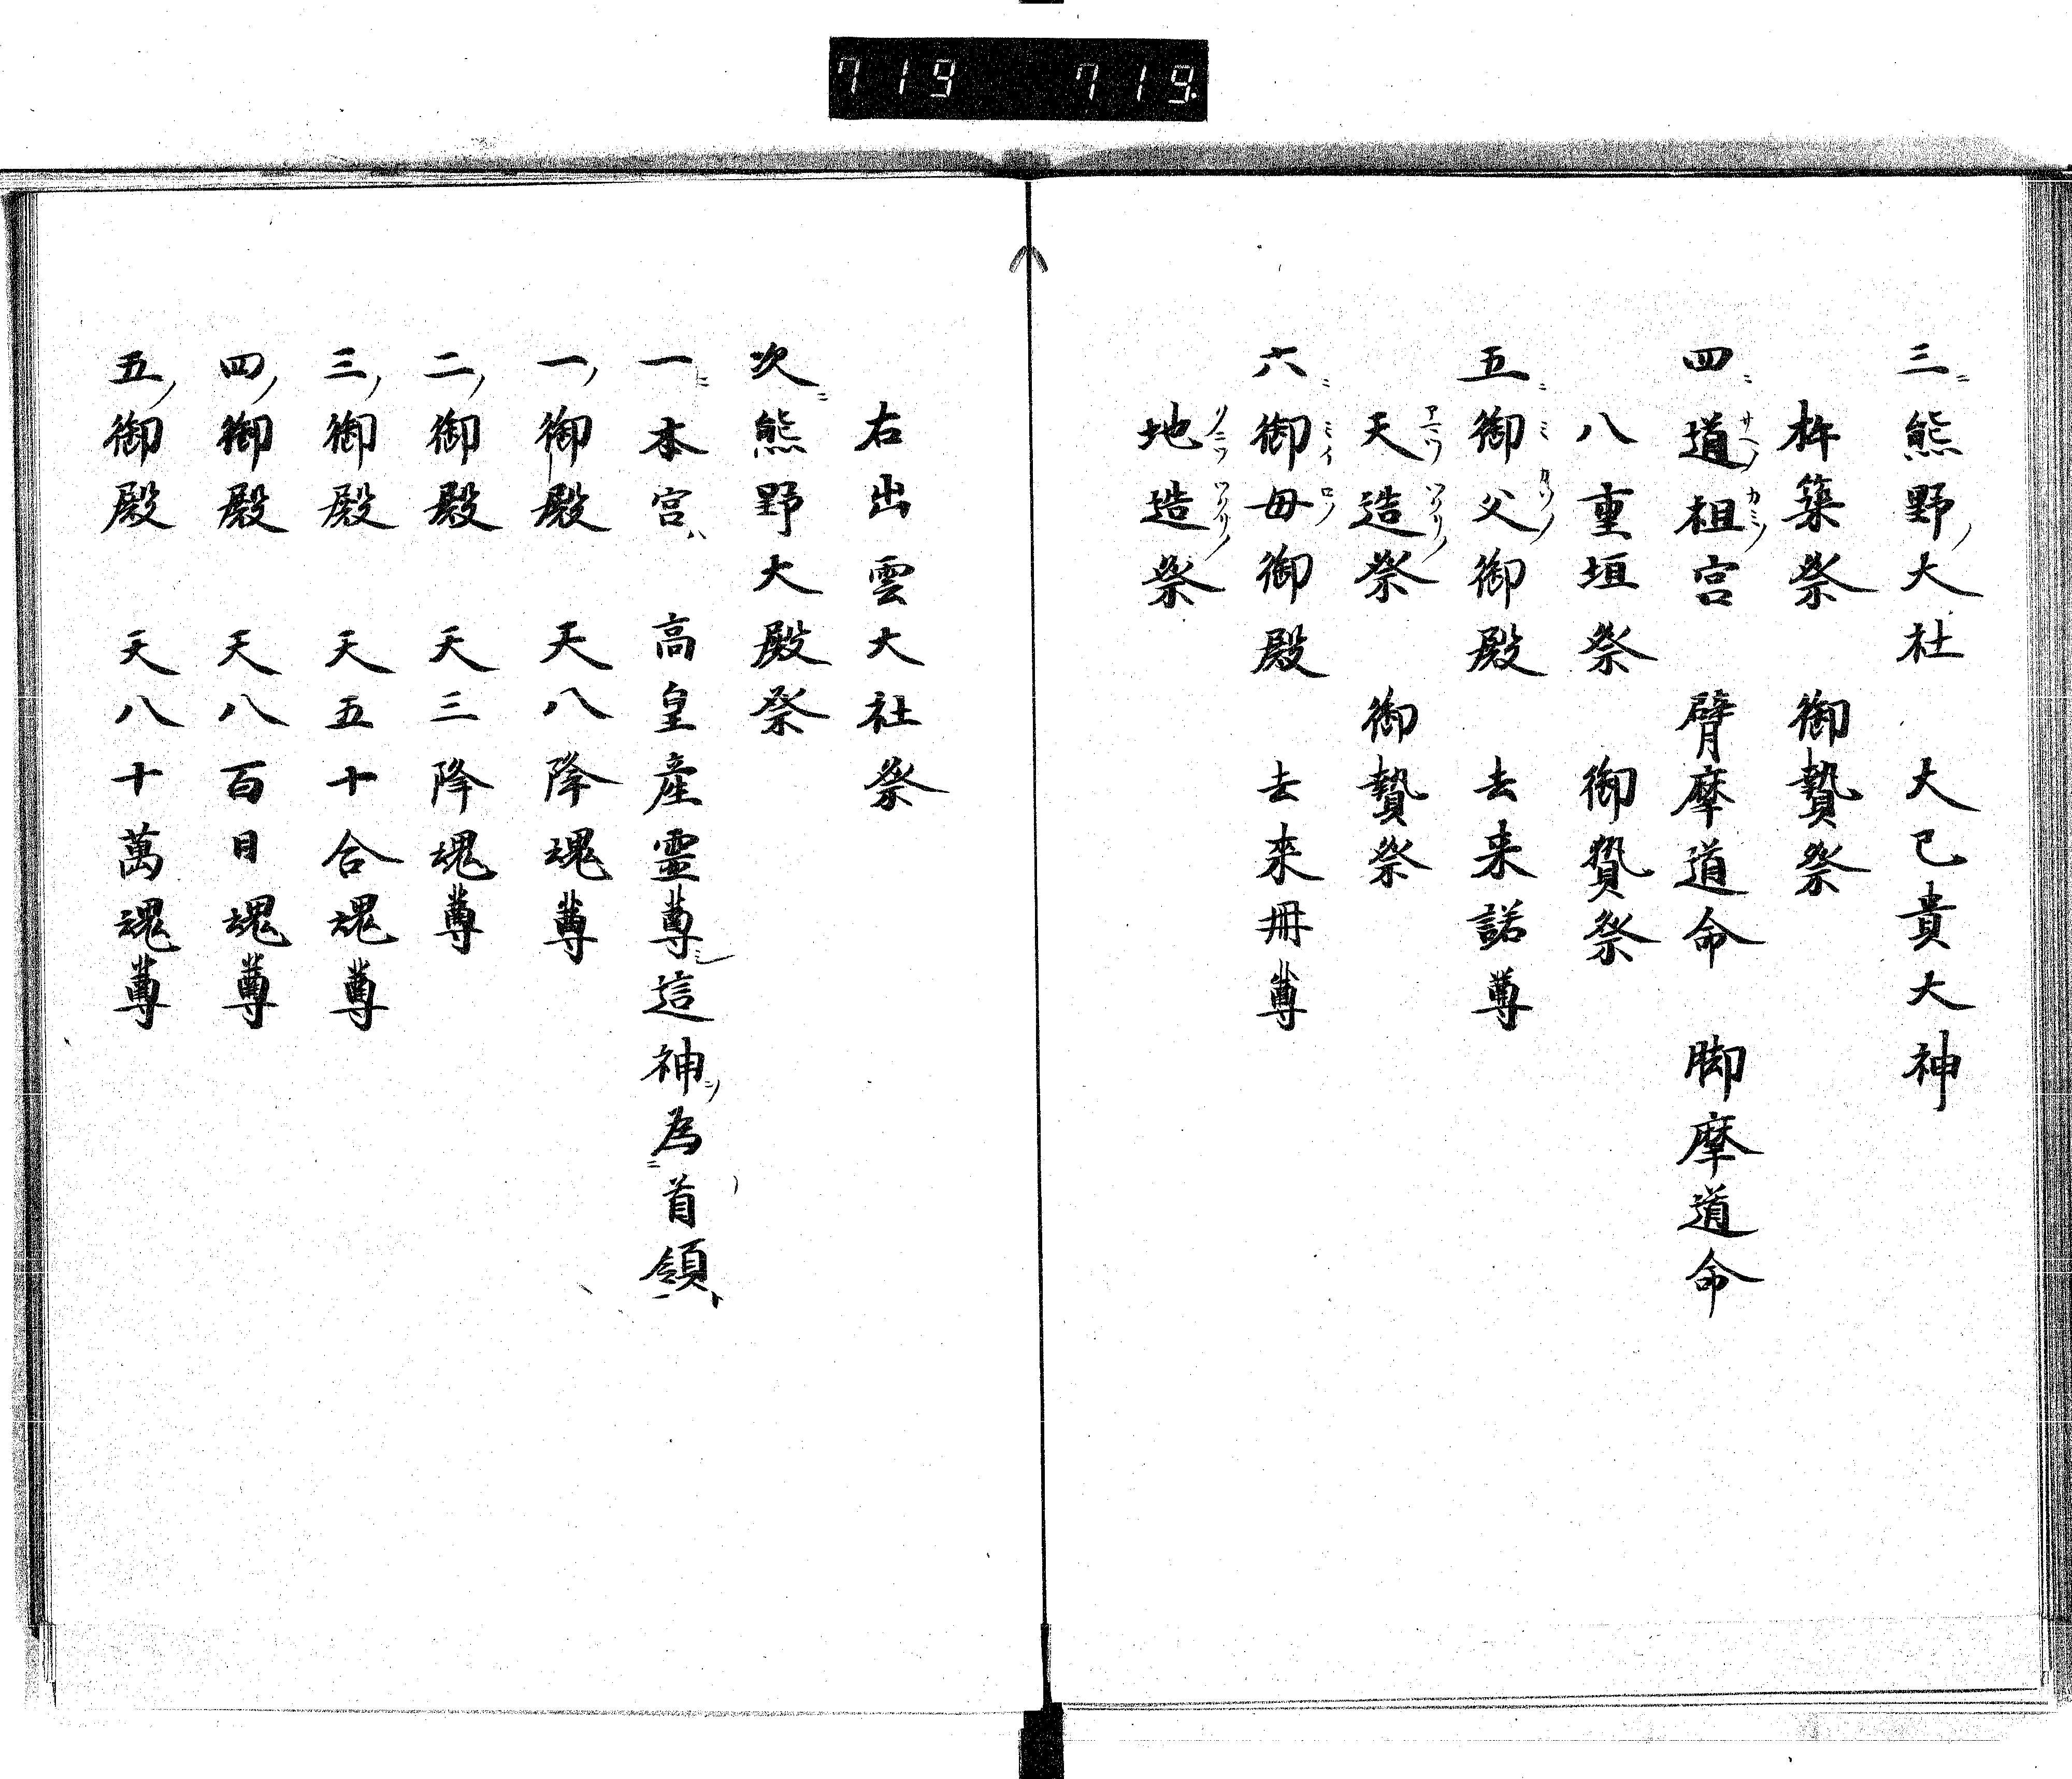 719 719
三ニ熊野ノ大社 大己貴大神
杵築祭 御贄祭
四ニ道祖宮 臂摩道命 脚摩道命
八重垣祭 御贄祭
五ニ御父御殿 去来諾尊
天造祭 御贄祭
六ニ御母御殿 去来冊尊
地造祭
右出雲大社祭
次ニ熊野大殿祭
一ニ本宮ハ 高皇産霊尊這神為首領
一ノ御殿 天八降魂尊
二ノ御殿 天三降魂尊
三ノ御殿 天五十合魂尊
四ノ御殿 天八百日魂尊
五ノ御殿 天八十萬魂尊